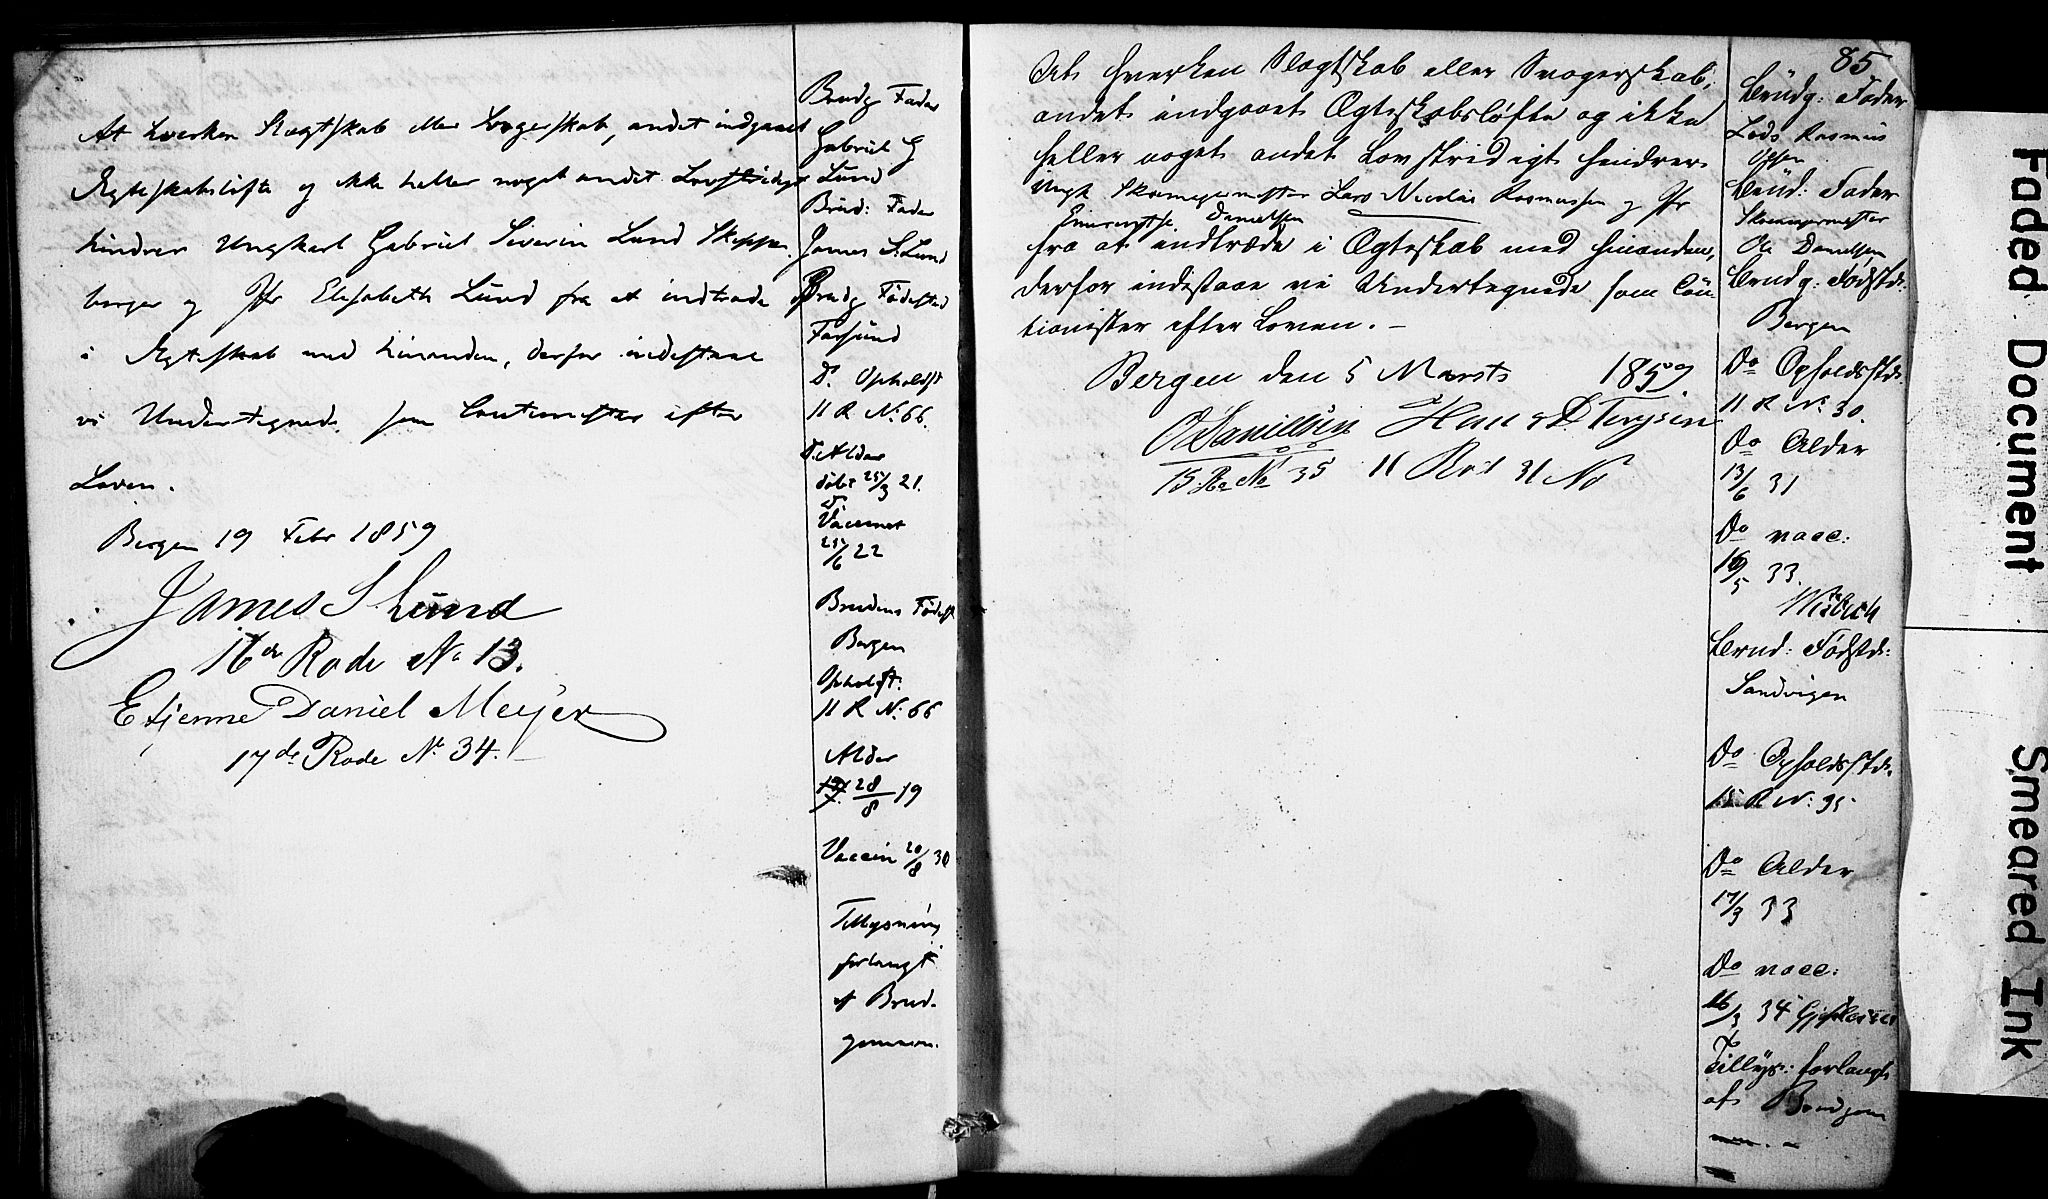 At hverken Slægtskab eller Svogerskab, andet indgaaet
Ægteskabsløfte og ikke heller noget andet Lovstridigt
hindrer Ungkarl Gabriel Severin Lund Skipper
borger og Jfr Elisabeth Lund fra at indtræde
i Ægteskab med hinanden, derfor indestaae
vi Undertegnede som Cautionister efter
Loven.
Bergen 19 Febr 1859
James S Lund
16de Rode No 13.
Etjenne Daniel Meyer
17de Rode No 34.
Brudg Fader
Gabriel G
Lund
Brud: Fader
James S. Lund
Brudg Fødested
Farsund
Do Opholdst
11 R No. 66.
Do Alder
døbt 25/3 21.
Do
Vaccineret
25/6 22
Brudens Fødest
Bergen
Opholdst:
11 R No. 66
Alder
28/8 19
Vaccin 20/8 30
Tillysning
forlangt
af Brud-
gommen.
85
At hverken Slægtskab eller Svogerskab,
andet indgaaet Ægteskabsløfte og ikke
heller noget andet Lovstridigt hindrer
Ungk. Skomagermester Lars Nicolai Rasmussen og Jfr
Danielsen
fra at indtræde i Ægteskab med hinanden,
derfor indestaae vi Undertegnede som Cau-
tionister efter Loven. –
Bergen den 5 Marts 1859
O Danielsen
15 Ro No 35 11 Rod 31 No
Brudg: Fader
Lods Rasmus
Olsen
Brud: Fader
Skomagermester
Ole Danielsen
Brudg: Fødstd:
Bergen
Do Opholdsstd:
11 R No. 30.
Do Alder
13/6 31
Do vacc:
33.
Brud: Fødstd:
Sandvigen
Do Opholdsstd:
15 R No: 35
Do Alder
17/3 33
Do vacc:
16/3 34
Tillys: forlangt
af Brudgom
Faded Document
Smeared Ink